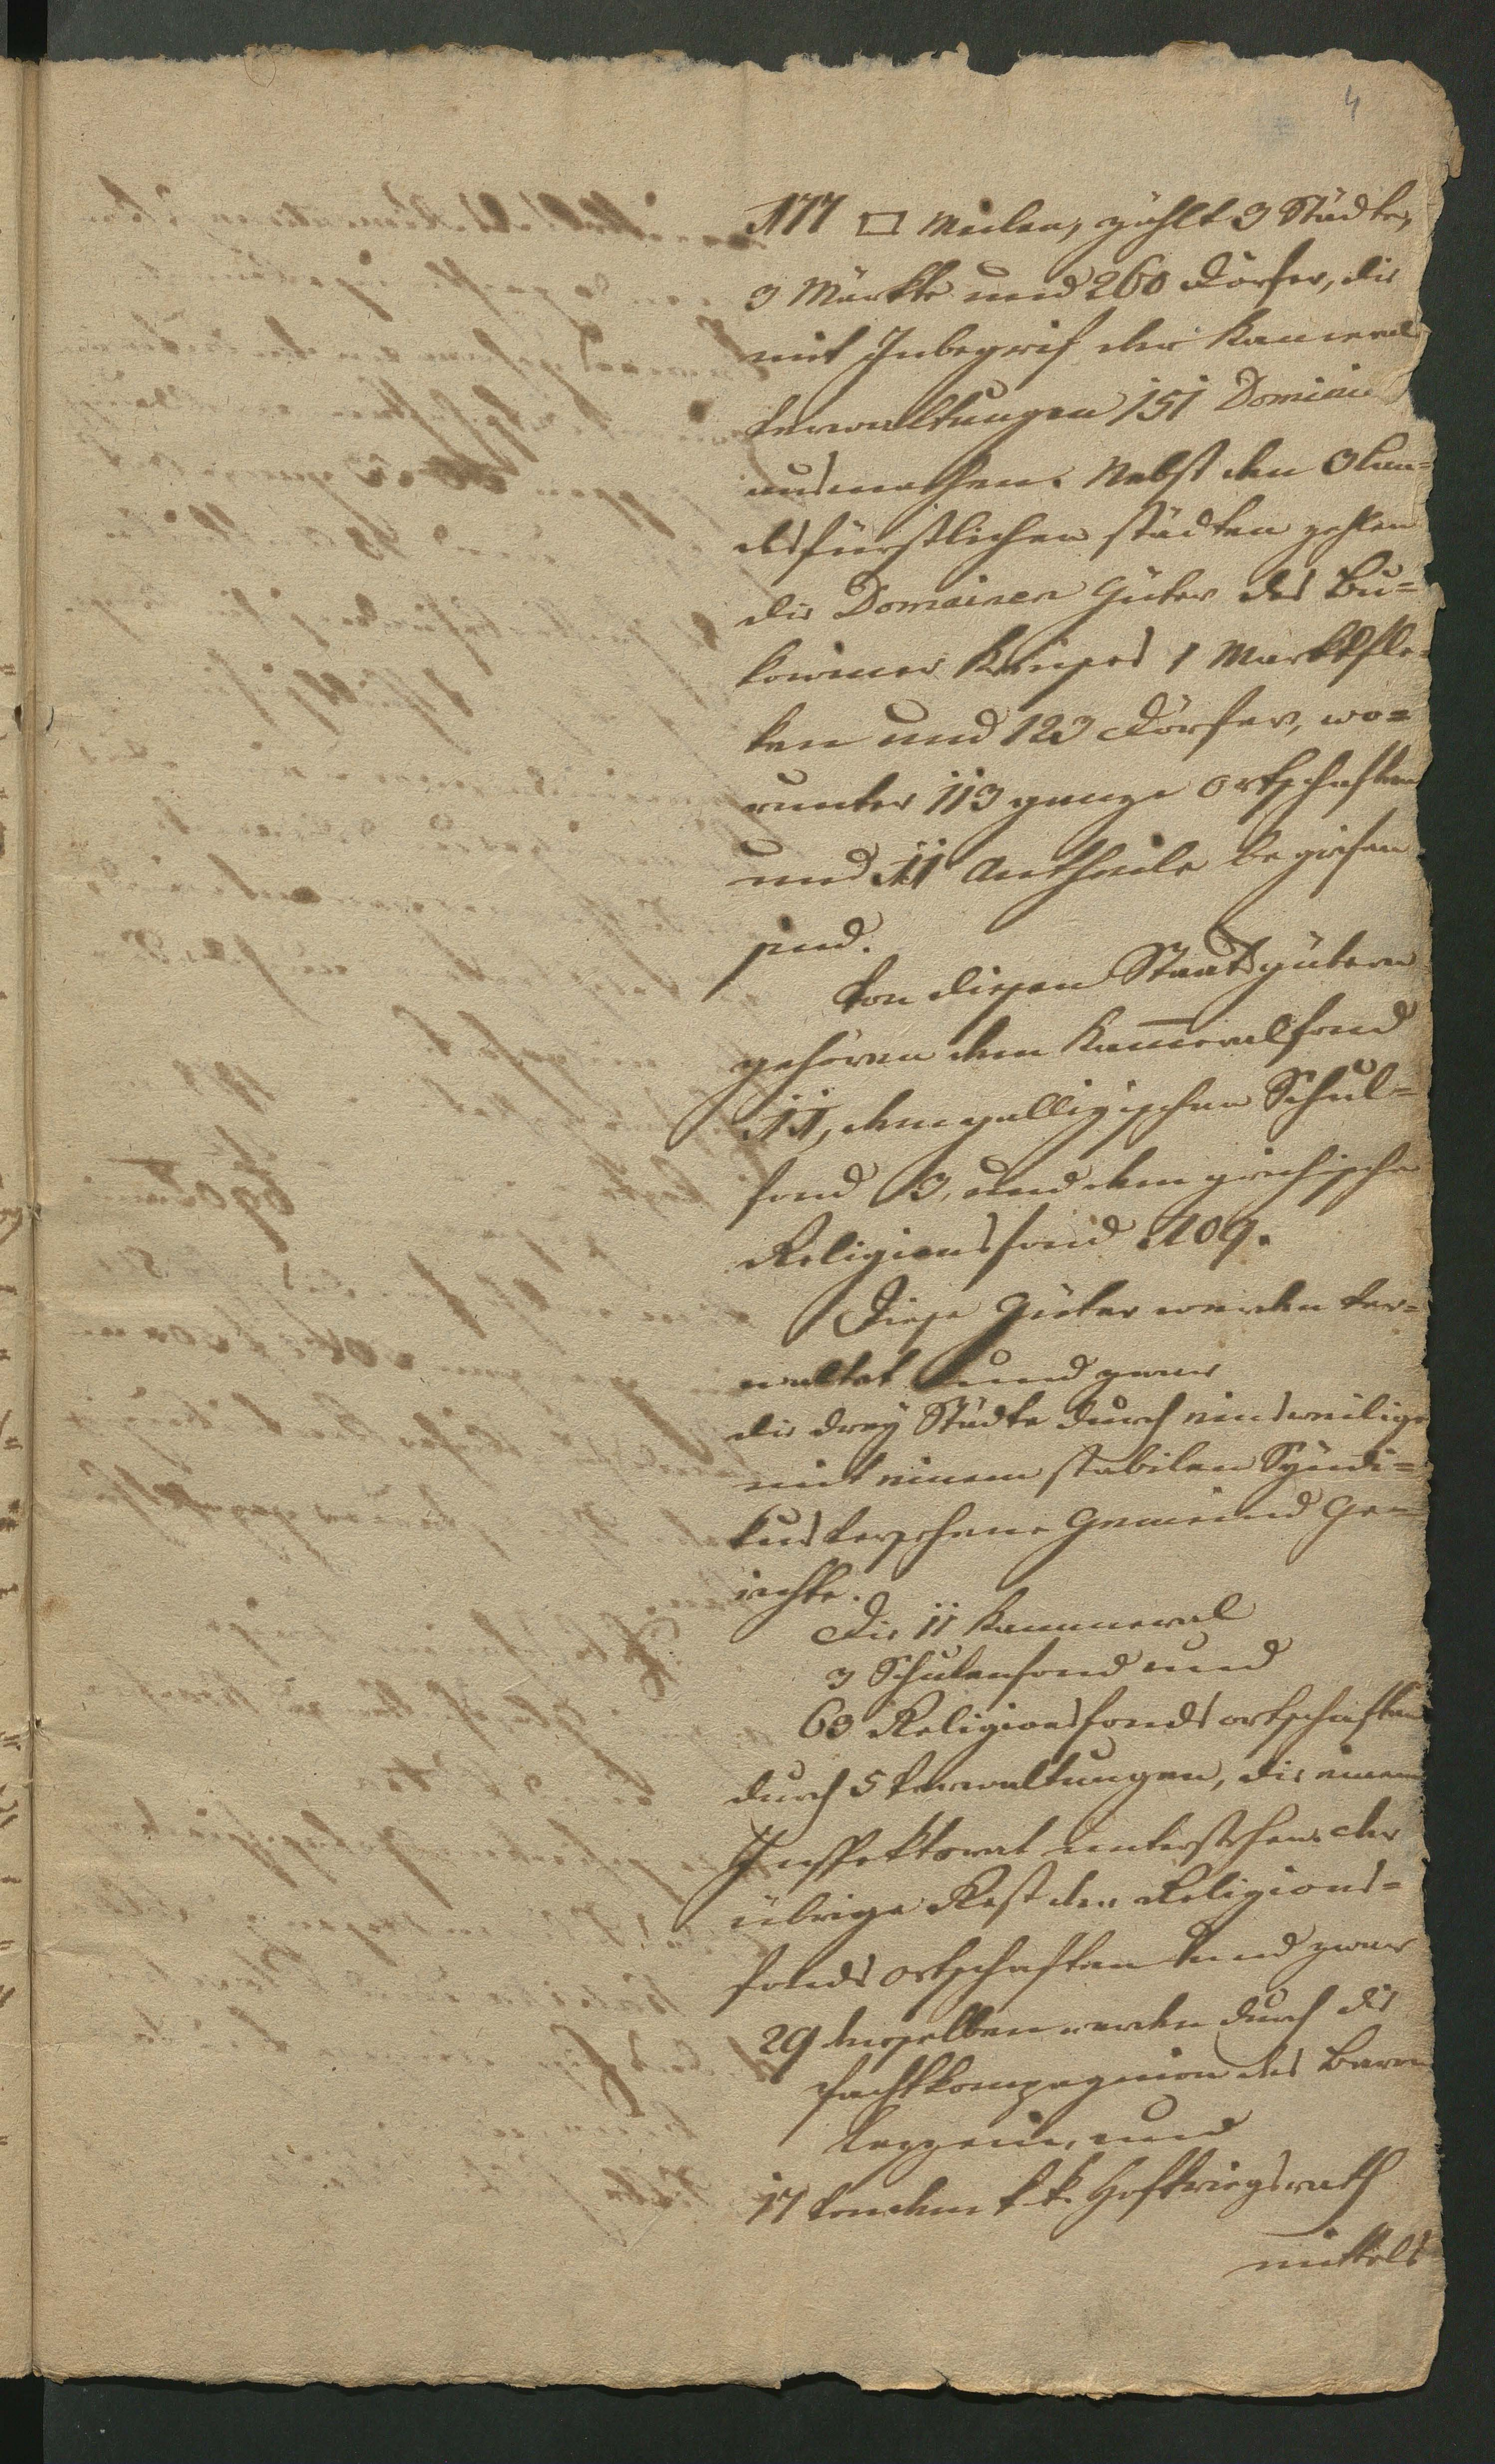 4
177 □ Meilen, zählt 3 Städte,
3 Märkte und 260 Dörfer, die
mit Inbegrif der Kameral
Verwaltungen 151 Dominien
ausmachen. Nebst den 3 Lan=
desfürstlichen städten zehlen
die Domainen Güter des Bu=
kowiner Kreises 1 Marktfle=
ken und 123 Dörfer, wo=
runter 113 ganze Ortschaften
und 11 Antheile begrifen
sind.
Von diesen Staatsgütern
gehören dem Kam̅eralfond
11, dem gallizischen Schul=
fond 3, und dem griechischen
Religionsfond 109.
Diese Güter werden ver=
waltet und zwar
die drey Städte durch einsweilige
mit einem stabilen Syndi=
kus versehene Gemeind Ge=
richte.
Die 11 Kammeral
3 Schulenfond und
63 Religionsfonds ortschaften
durch 5 Verwaltungen, die einem
Inspektorat unterstehen. der
übrige Rest der Religions=
fonds ortschaften und zwar
29 derselben werden durch die
Pachtkompagnion des Baron
und
17 von dem k. k. Hofkriegsrath
mittels